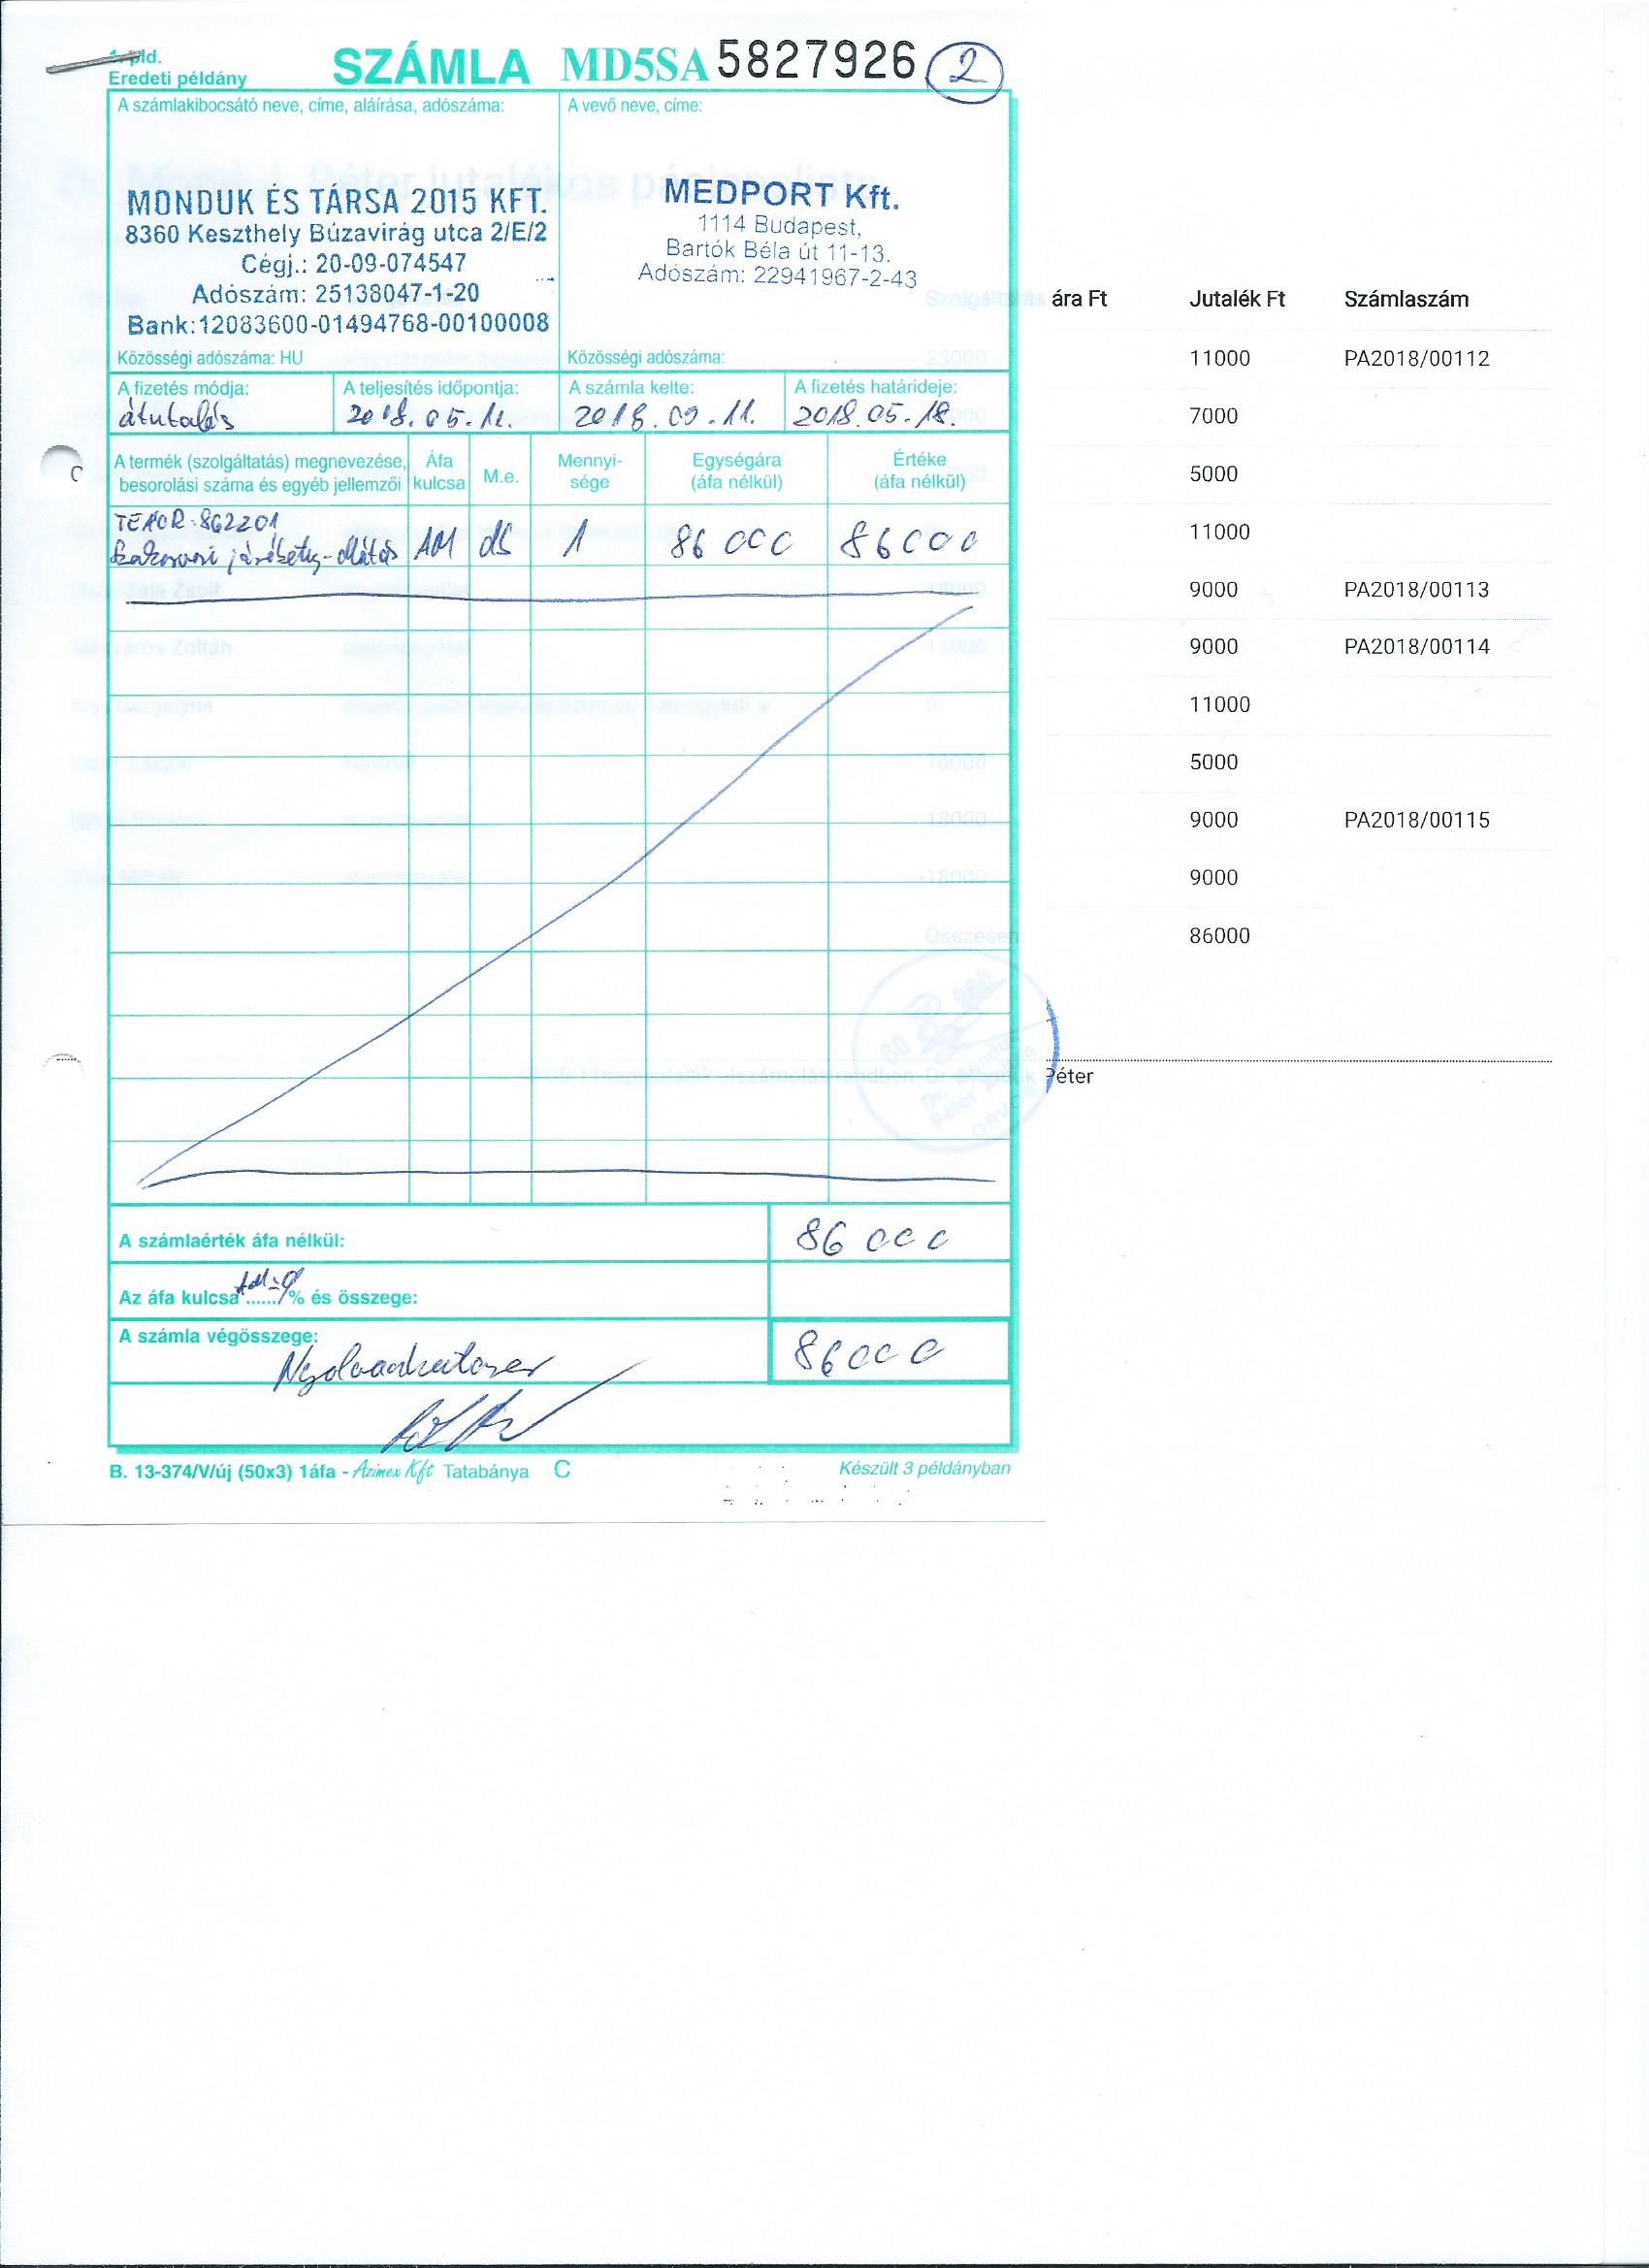 1. pld.
Eredeti példány
SZÁMLA MD5SA 5827926 2
A számlakibocsátó neve, címe, aláírása, adószáma:
MONDUK ÉS TÁRSA 2015 KFT.
8360 Keszthely Búzavirág utca 2/E/2
Cégj.: 20-09-074547
Adószám: 25138047-1-20
Bank:12083600-01494768-00100008
Közösségi adószáma: HU
A vevő neve, címe:
MEDPORT Kft.
1114 Budapest,
Bartók Béla út 11-13.
Adószám: 22941967-2-43
Közösségi adószáma:
A fizetés módja: A teljesítés időpontja: A számla kelte: A fizetés határideje:
átutalás 2018.05.11. 2018.05.11. 2018.05.18.
A termék (szolgáltatás) megnevezése, besorolási száma és egyéb jellemzői Áfa kulcsa M.e. Mennyi-sége Egységára (áfa nélkül) Értéke (áfa nélkül)
TEÁOR: 862201
Szakorvosi járóbeteg-ellátás AM db 1 86 000 86000
A számlaérték áfa nélkül: 86 000
Az áfa kulcsa ......% és összege:
A számla végösszege: 86000
Nyolcvanhatezer
B. 13-374/V/új (50x3) 1áfa - Azimex Kft Tatabánya C Készült 3 példányban
Szolgáltatás ára Ft Jutalék Ft Számlaszám
23000 11000 PA2018/00112
7000
5000
11000
18000 9000 PA2018/00113
Mészáros Zoltán 18000 9000 PA2018/00114
11000
10000 5000
18000 9000 PA2018/00115
18000 9000
Összesen: 86000
Péter